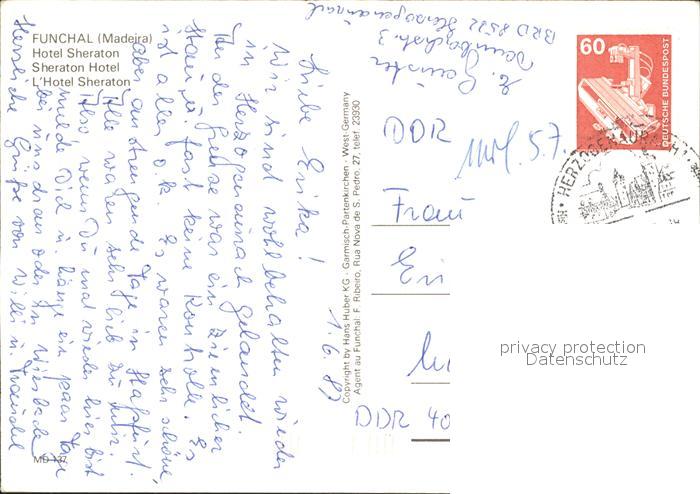 FUNCHAL (Madeira)
Hotel Sheraton
Sheraton Hotel
L'Hotel Sheraton
1.6.87
Liebe Erika!
Wir sind wohlbehalten wieder
in Herzogenaurach gelandet.
An der Grenze war ein ziemlicher
Stau, u. fast keine Kontrolle. Es
ist alles o.k. Es waren sehr schöne,
aber anstrengende Tage in
Alle waren sehr lieb zu mir.
Also wenn Du mal wieder hier bist
melde Dich u. hänge ein paar Tage
bei uns dran oder in
Herzliche Grüße von Willi u.
MD 137
Copyright by Hans Huber KG · Garmisch-Partenkirchen · West Germany
Agent au Funchal: F. Ribeiro, Rua Nova de S. Pedro, 27, telef. 23930
3
BRD 8522 Herzogenaurach
60
DEUTSCHE BUNDESPOST
HERZOGENAURACH
DDR
5.7.
Frau
Eri
DDR 40
privacy protection
Datenschutz